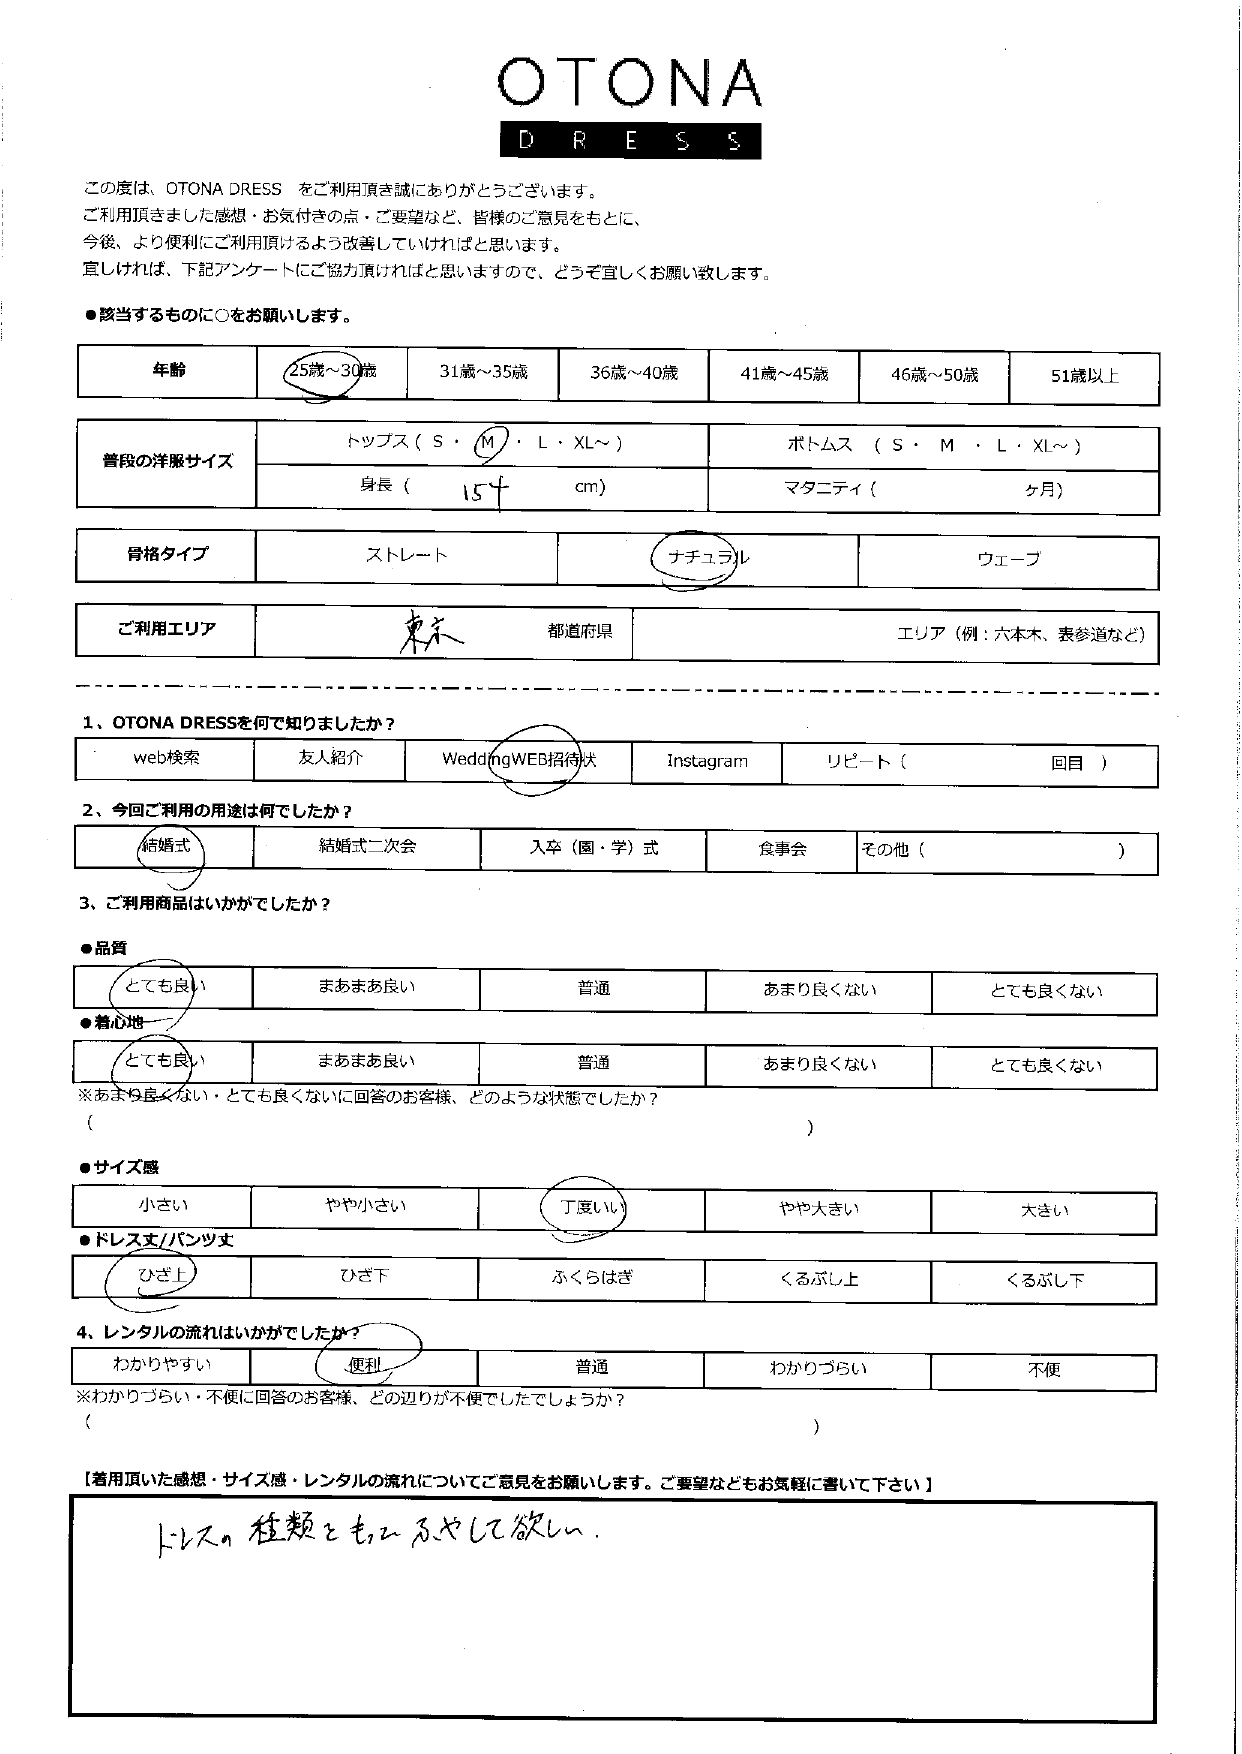 OTONA
DRESS
この度は、OTONA DRESS をご利用頂き誠にありがとうございます。
ご利用頂きました感想・お気付きの点・ご要望など、皆様のご意見をもとに、
今後、より便利にご利用頂けるよう改善していければと思います。
宜しければ、下記アンケートにご協力頂ければと思いますので、どうぞ宜しくお願い致します。
●該当するものに○をお願いします。
年齢 25歳～30歳 31歳～35歳 36歳～40歳 41歳～45歳 46歳～50歳 51歳以上
普段の洋服サイズ トップス ( S ・ M ・ L ・ XL～ ) ボトムス ( S ・ M ・ L ・ XL～ )
身長 ( 154 cm) マタニティ ( ヶ月)
骨格タイプ ストレート ナチュラル ウェーブ
ご利用エリア 東京 都道府県 エリア（例：六本木、表参道など）
1、OTONA DRESSを何で知りましたか？
web検索 友人紹介 WeddingWEB招待状 Instagram リピート ( 回目 )
2、今回ご利用の用途は何でしたか？
結婚式 結婚式二次会 入卒（園・学）式 食事会 その他 ( )
3、ご利用商品はいかがでしたか？
●品質
とても良い まあまあ良い 普通 あまり良くない とても良くない
●着心地
とても良い まあまあ良い 普通 あまり良くない とても良くない
※あまり良くない・とても良くないに回答のお客様、どのような状態でしたか？
( )
●サイズ感
小さい やや小さい 丁度いい やや大きい 大きい
●ドレス丈/パンツ丈
ひざ上 ひざ下 ふくらはぎ くるぶし上 くるぶし下
4、レンタルの流れはいかがでしたか？
わかりやすい 便利 普通 わかりづらい 不便
※わかりづらい・不便に回答のお客様、どの辺りが不便でしたでしょうか？
( )
【着用頂いた感想・サイズ感・レンタルの流れについてご意見をお願いします。ご要望などもお気軽に書いて下さい 】
ドレスの種類をもっとふやして欲しい.